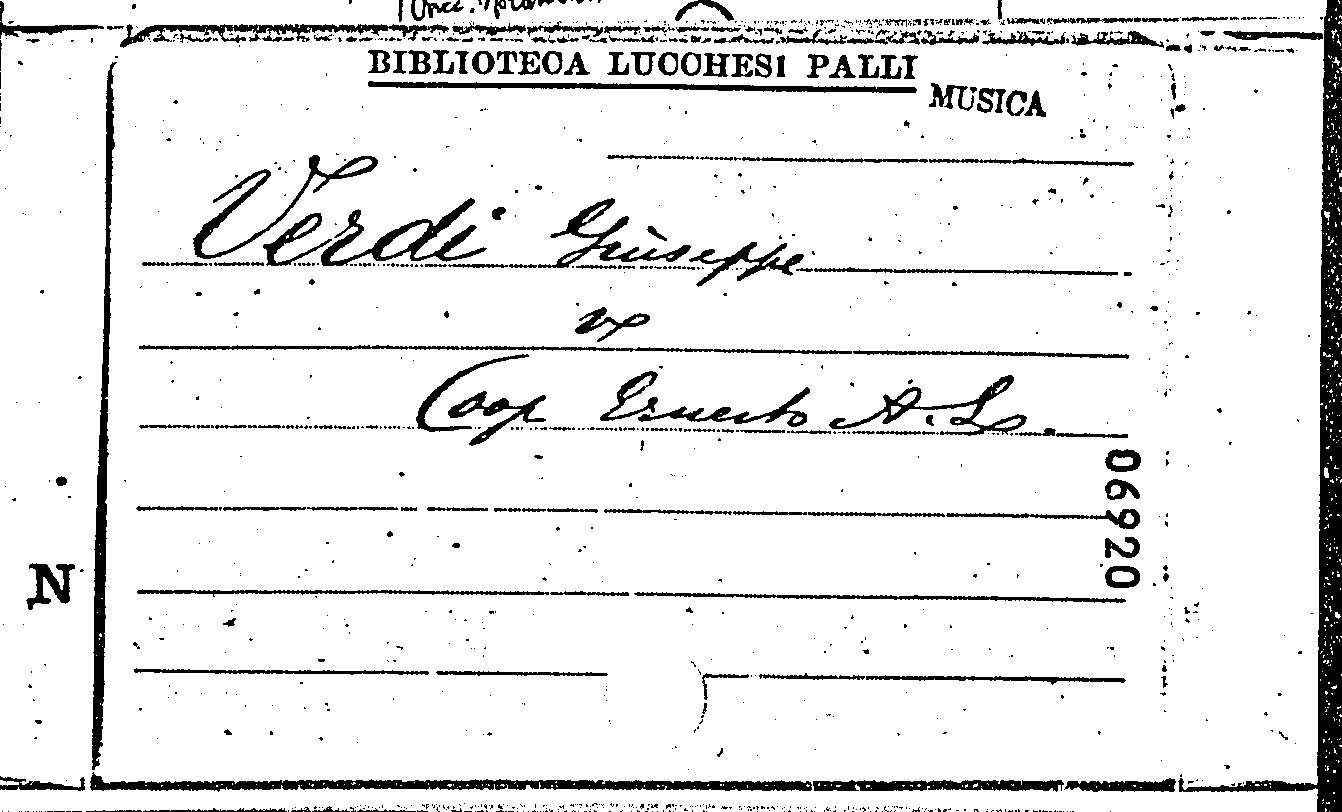 BIBLIOTECA LUCCHESI PALLI
MUSICA
Verdi Giuseppe
Coop Ernesto A. L.
06920
N